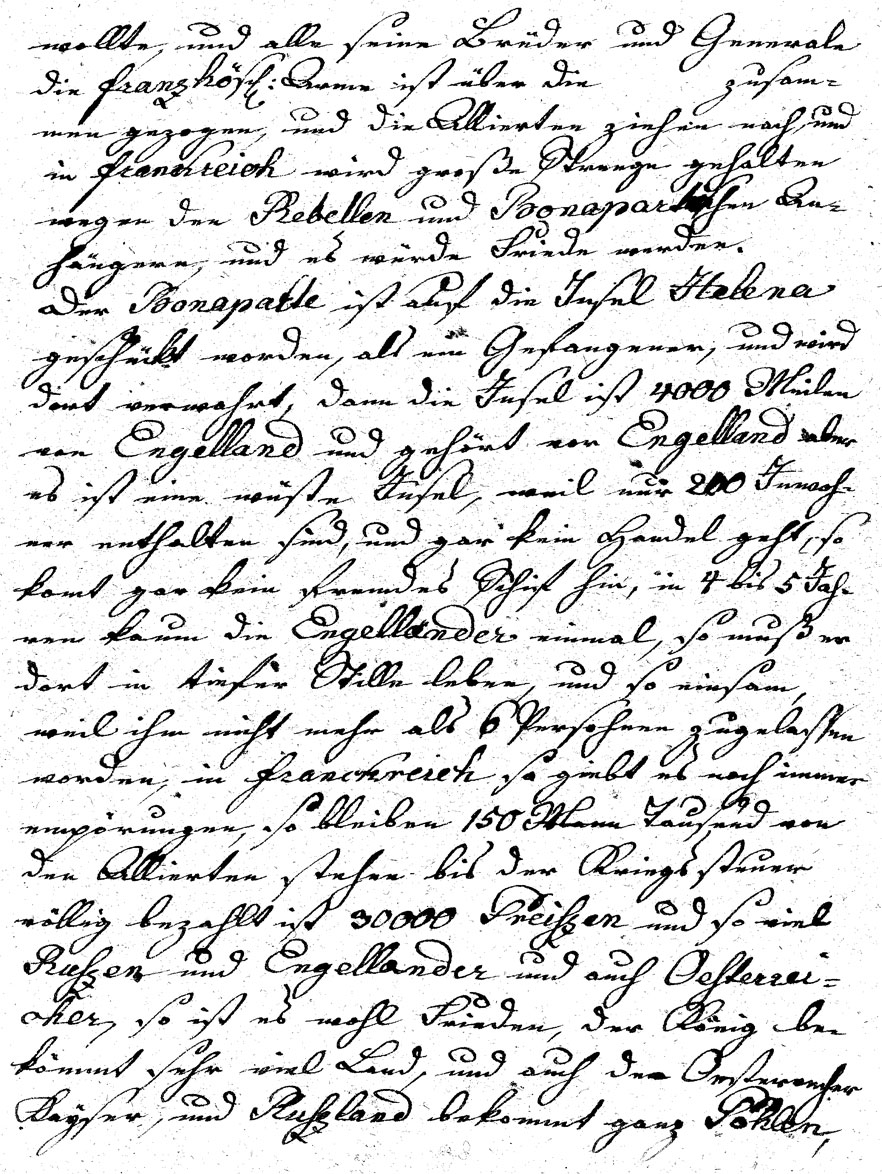 wollte, und alle seine Brüder und Generale
die franzhösch: Arme ist über die zusam=
men gezogen, und die Allierten ziehen nach, und
in franckreich wird große Strenge gehalten
wegen den Rebellen und Bonapartischen An=
hängern, und es würde Friede werden.
Der Bonaparte ist auf die Insel Helena
geschückt worden, als ein Gefangener, und wird
dort verwahrt, dann die Insel ist 4000 Meilen
von Engelland und gehört vor Engelland aber
es ist eine wüste Insel, weil nur 200 Inwoh=
ner enthalten sind, und gar kein Handel geht, so
komt gar kein fremdes Schif hin, in 4 bis 5 Jah=
ren kaum die Engelländer einmal, so muß er
dort in tiefer Stille leben, und so einsam,
weil ihm nicht mehr als 6 Persohnen zugelassen
worden, in franckreich so giebt es noch immer
empörungen, so bleiben 150 Mann Tausend von
den Allierten stehen bis der Kriegssteuer
völlig bezahlt ist 30000 Preißen und so viel
Rußen und Engelländer und auch Oesterrei=
cher, so ist es wohl Frieden, der König be=
kömmt sehr viel Land, und auch der Oesterreicher
Kayser, und Rußland bekommt ganz Pohlen,